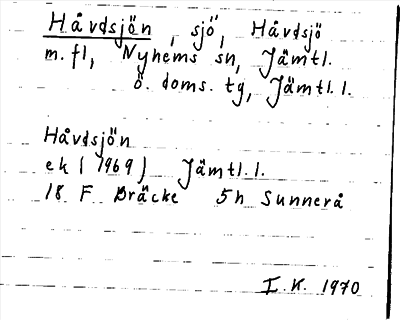 Håvdsjön, sjö, Håvdsjö
m.fl, Nyhems sn, Jämtl.
ö. doms. tg, Jämtl. l.
Håvdsjön
ek (1969) Jämtl. l.
18 F Bräcke 5h Sunnerå
I. K. 1970